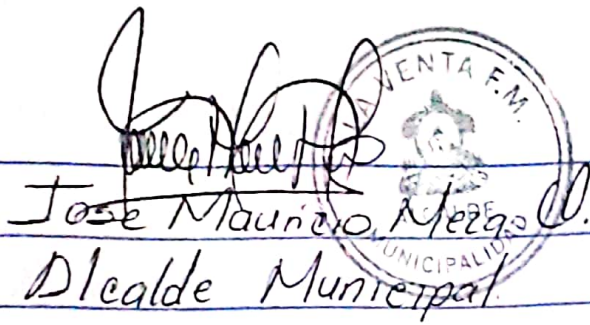 LA VENTA F.M.
ALCALDE
MUNICIPALIDAD
Jose Mauricio Meza
Alcalde Municipal